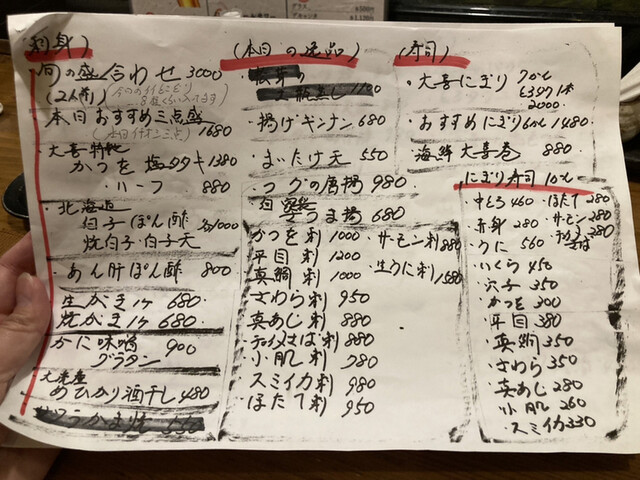 (刺身)
旬の盛合わせ 3000
(2人前)
本日おすすめ三点盛
1680
大喜特製
かつを 塩タタキ 1380
・ハーフ 880
・北海道
白子ぽん酢 各1000
焼白子・白子天
・あん肝ぽん酢 800
生がき1ケ 680
焼がき1ケ 680
かに味噌 900
グラタン
めひかり酒干し 480
(本日の逸品)
・揚げギンナン 680
・まいたけ天 550
・フグの唐揚 980
さつま揚 680
かつを刺 1000
平目刺 1200
真鯛刺 1000
さわら刺 950
真あじ刺 880
小肌刺 780
スミイカ刺 980
ほたて刺 950
・サーモン刺 880
・生うに刺 1580
(寿司)
・大喜にぎり 7かん
2000
・おすすめにぎり6かん 1480
海鮮大喜巻 880
にぎり寿司
・中とろ 460
・赤身 280
・うに 560
・いくら 450
・穴子 350
・かつを 300
・平目 380
・真鯛 350
・さわら 350
・真あじ 280
・小肌 260
・スミイカ 330
・ほたて 280
・サーモン 280